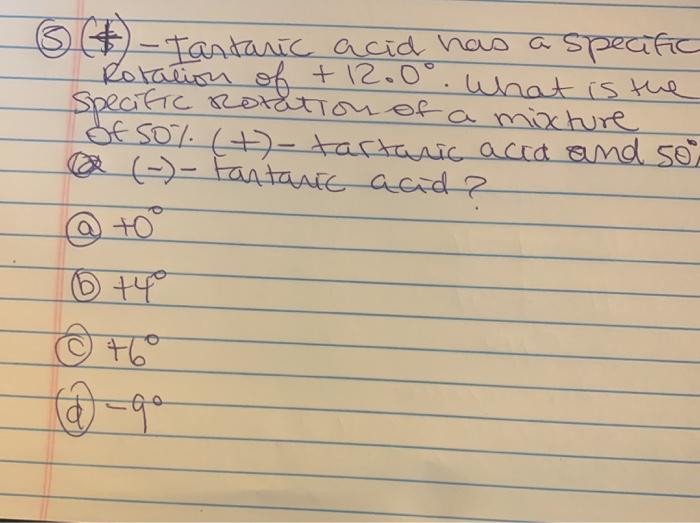 ⑤ (+)-Tartaric acid has a specific
Rotation of +12.0°. What is the
Specific rotation of a mixture
of 50% (+)- tartaric acid and 50%
(-)- tartaric acid?
ⓐ +0°
ⓑ +4°
ⓒ +6°
ⓓ -9°